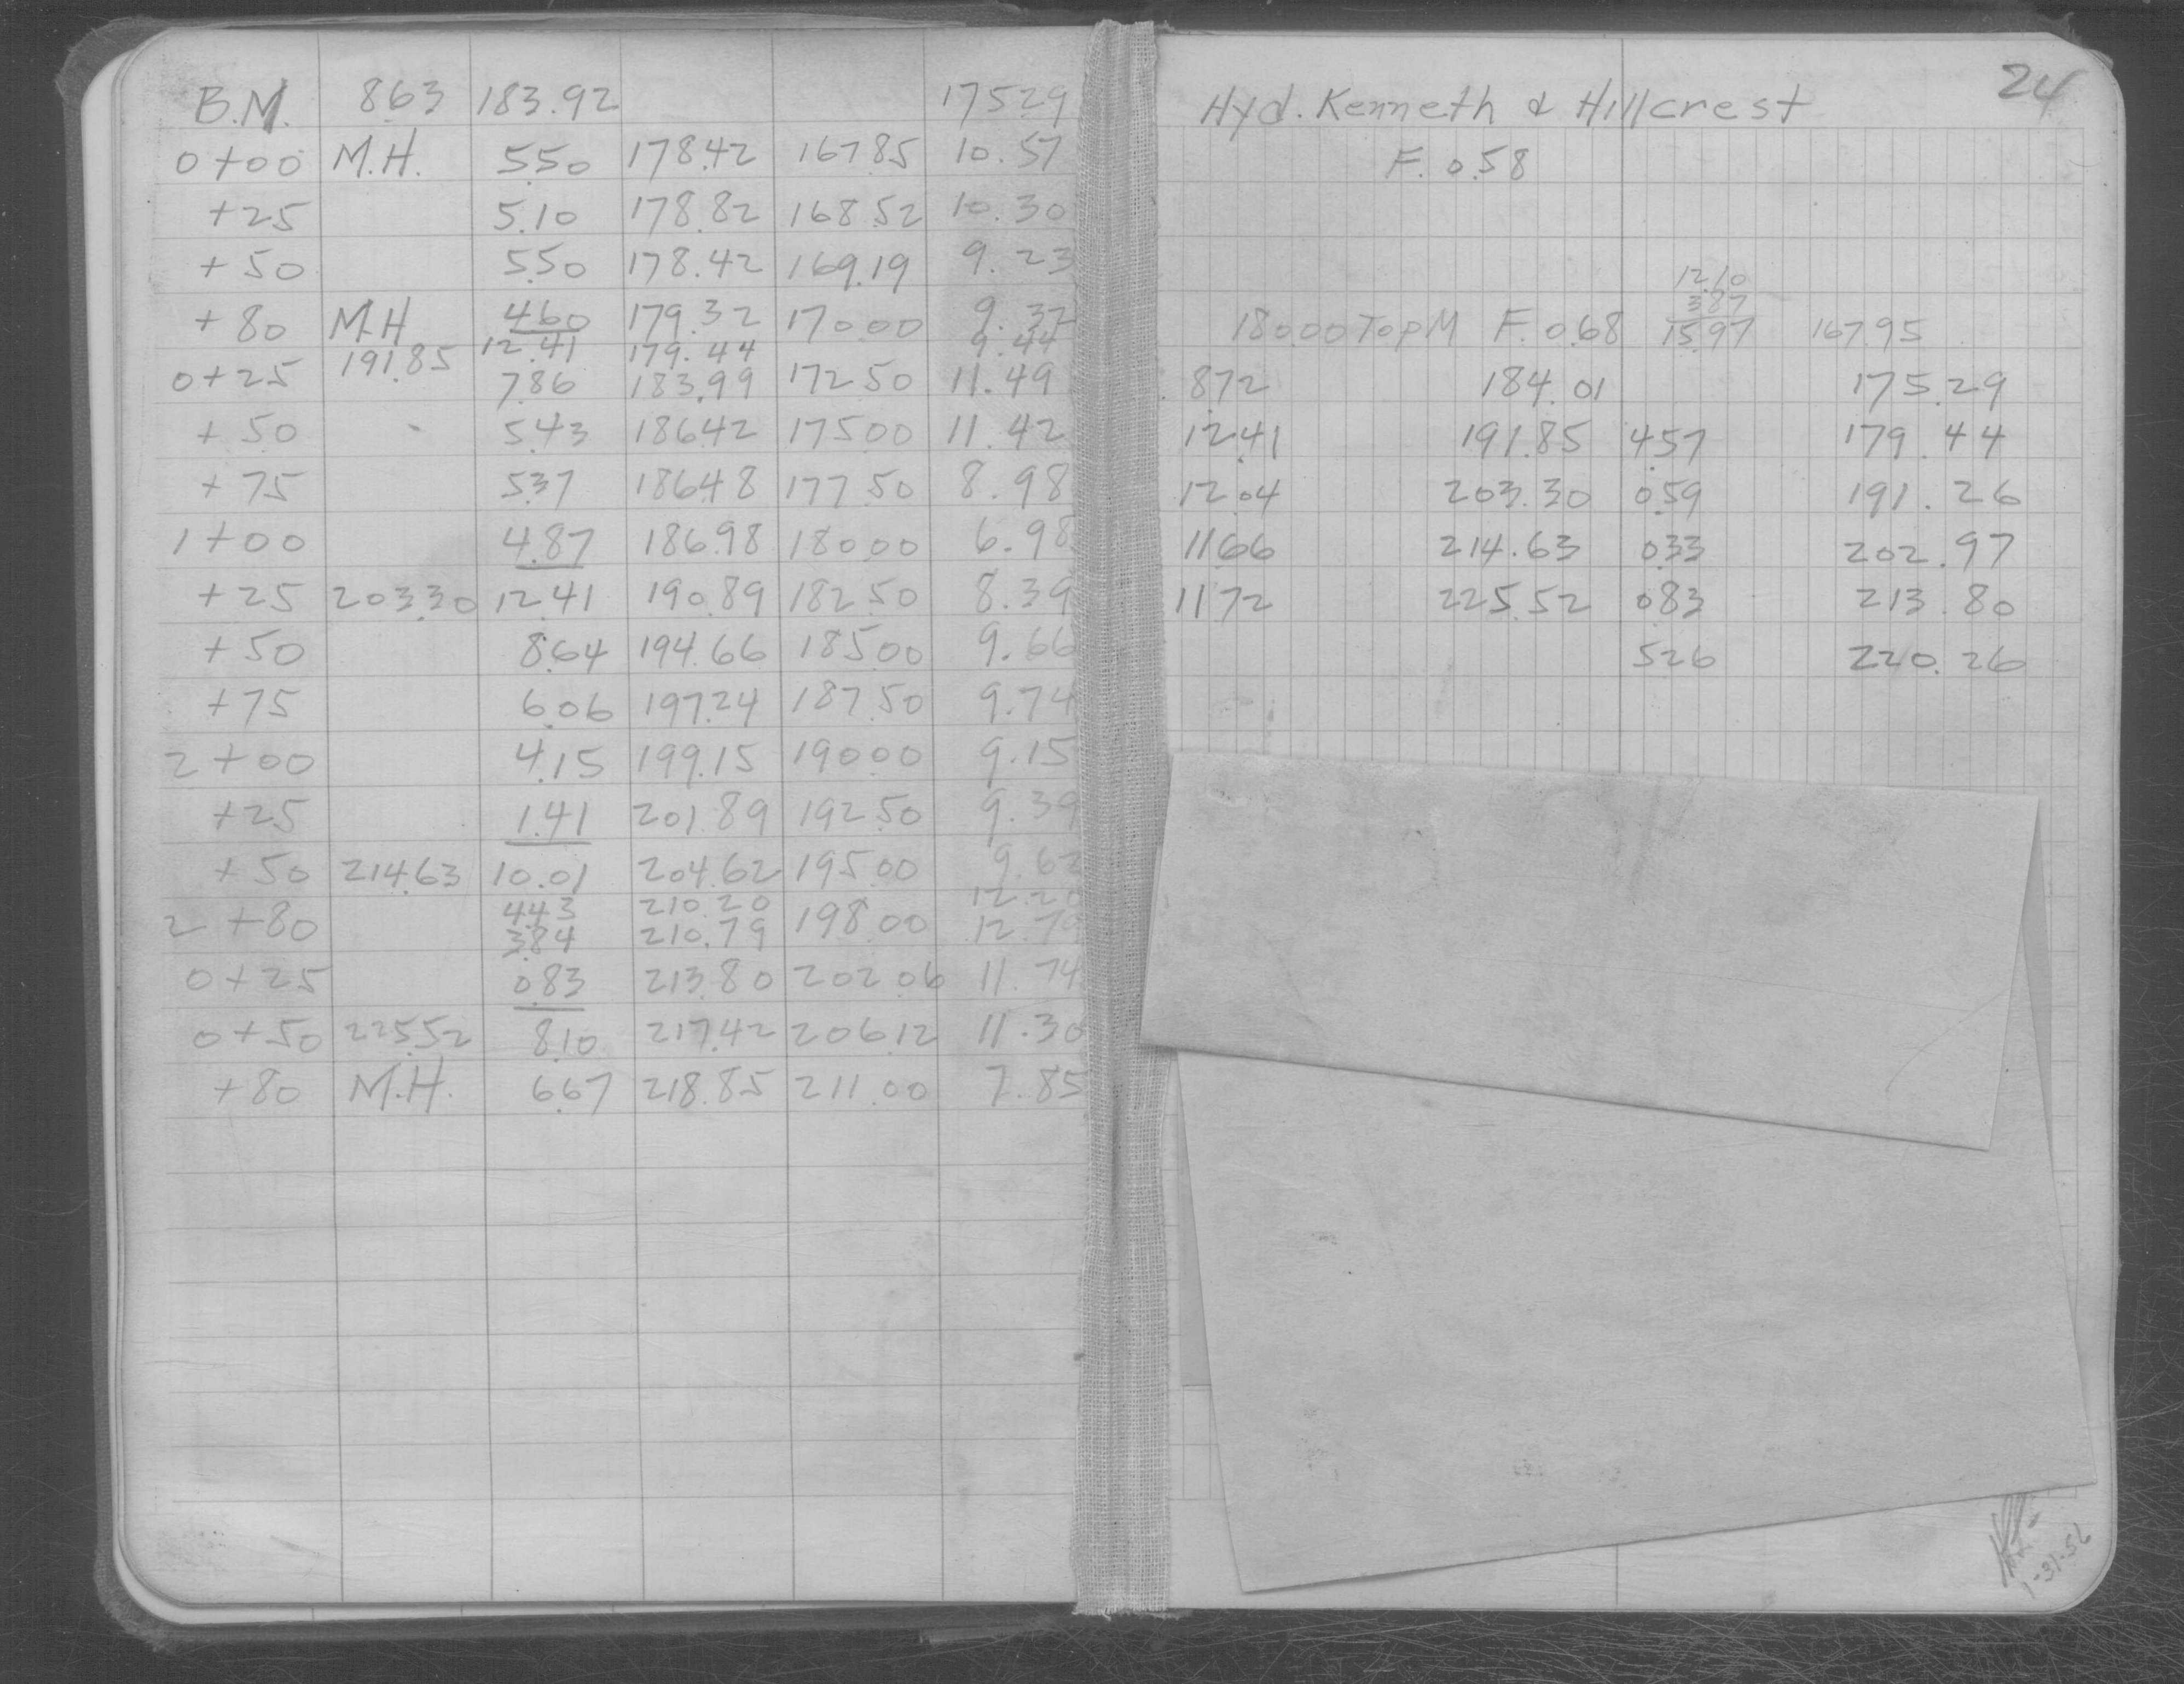 B.M. 8.63 183.92 175.29
0+00 M.H. 5.50 178.42 167.85 10.57
+25 5.10 178.82 168.52 10.30
+50 5.50 178.42 169.19 9.23
+80 M.H 4.60 179.32 170.00 9.32
191.85 12.41 179.44 9.44
0+25 7.86 183.99 172.50 11.49
+50 5.43 186.42 175.00 11.42
+75 5.37 186.48 177.50 8.98
1+00 4.87 186.98 180.00 6.98
+25 203.30 12.41 190.89 182.50 8.39
+50 8.64 194.66 185.00 9.66
+75 6.06 197.24 187.50 9.74
2+00 4.15 199.15 190.00 9.15
+25 1.41 201.89 192.50 9.39
+50 214.63 10.01 204.62 195.00 9.62
4.43 210.20 12.20
2+80 3.84 210.79 198.00 12.79
0+25 0.83 213.80 202.06 11.74
0+50 225.52 8.10 217.42 206.12 11.30
+80 M.H. 6.67 218.85 211.00 7.85
24
Hyd. Kenneth & Hillcrest
F. 0.58
12.10
3.87
180.00 Top M F. 0.68 15.97 167.95
8.72 184.01 175.29
12.41 191.85 4.57 179.44
12.04 203.30 0.59 191.26
11.66 214.63 0.33 202.97
11.72 225.52 0.83 213.80
5.26 220.26
1-31-56